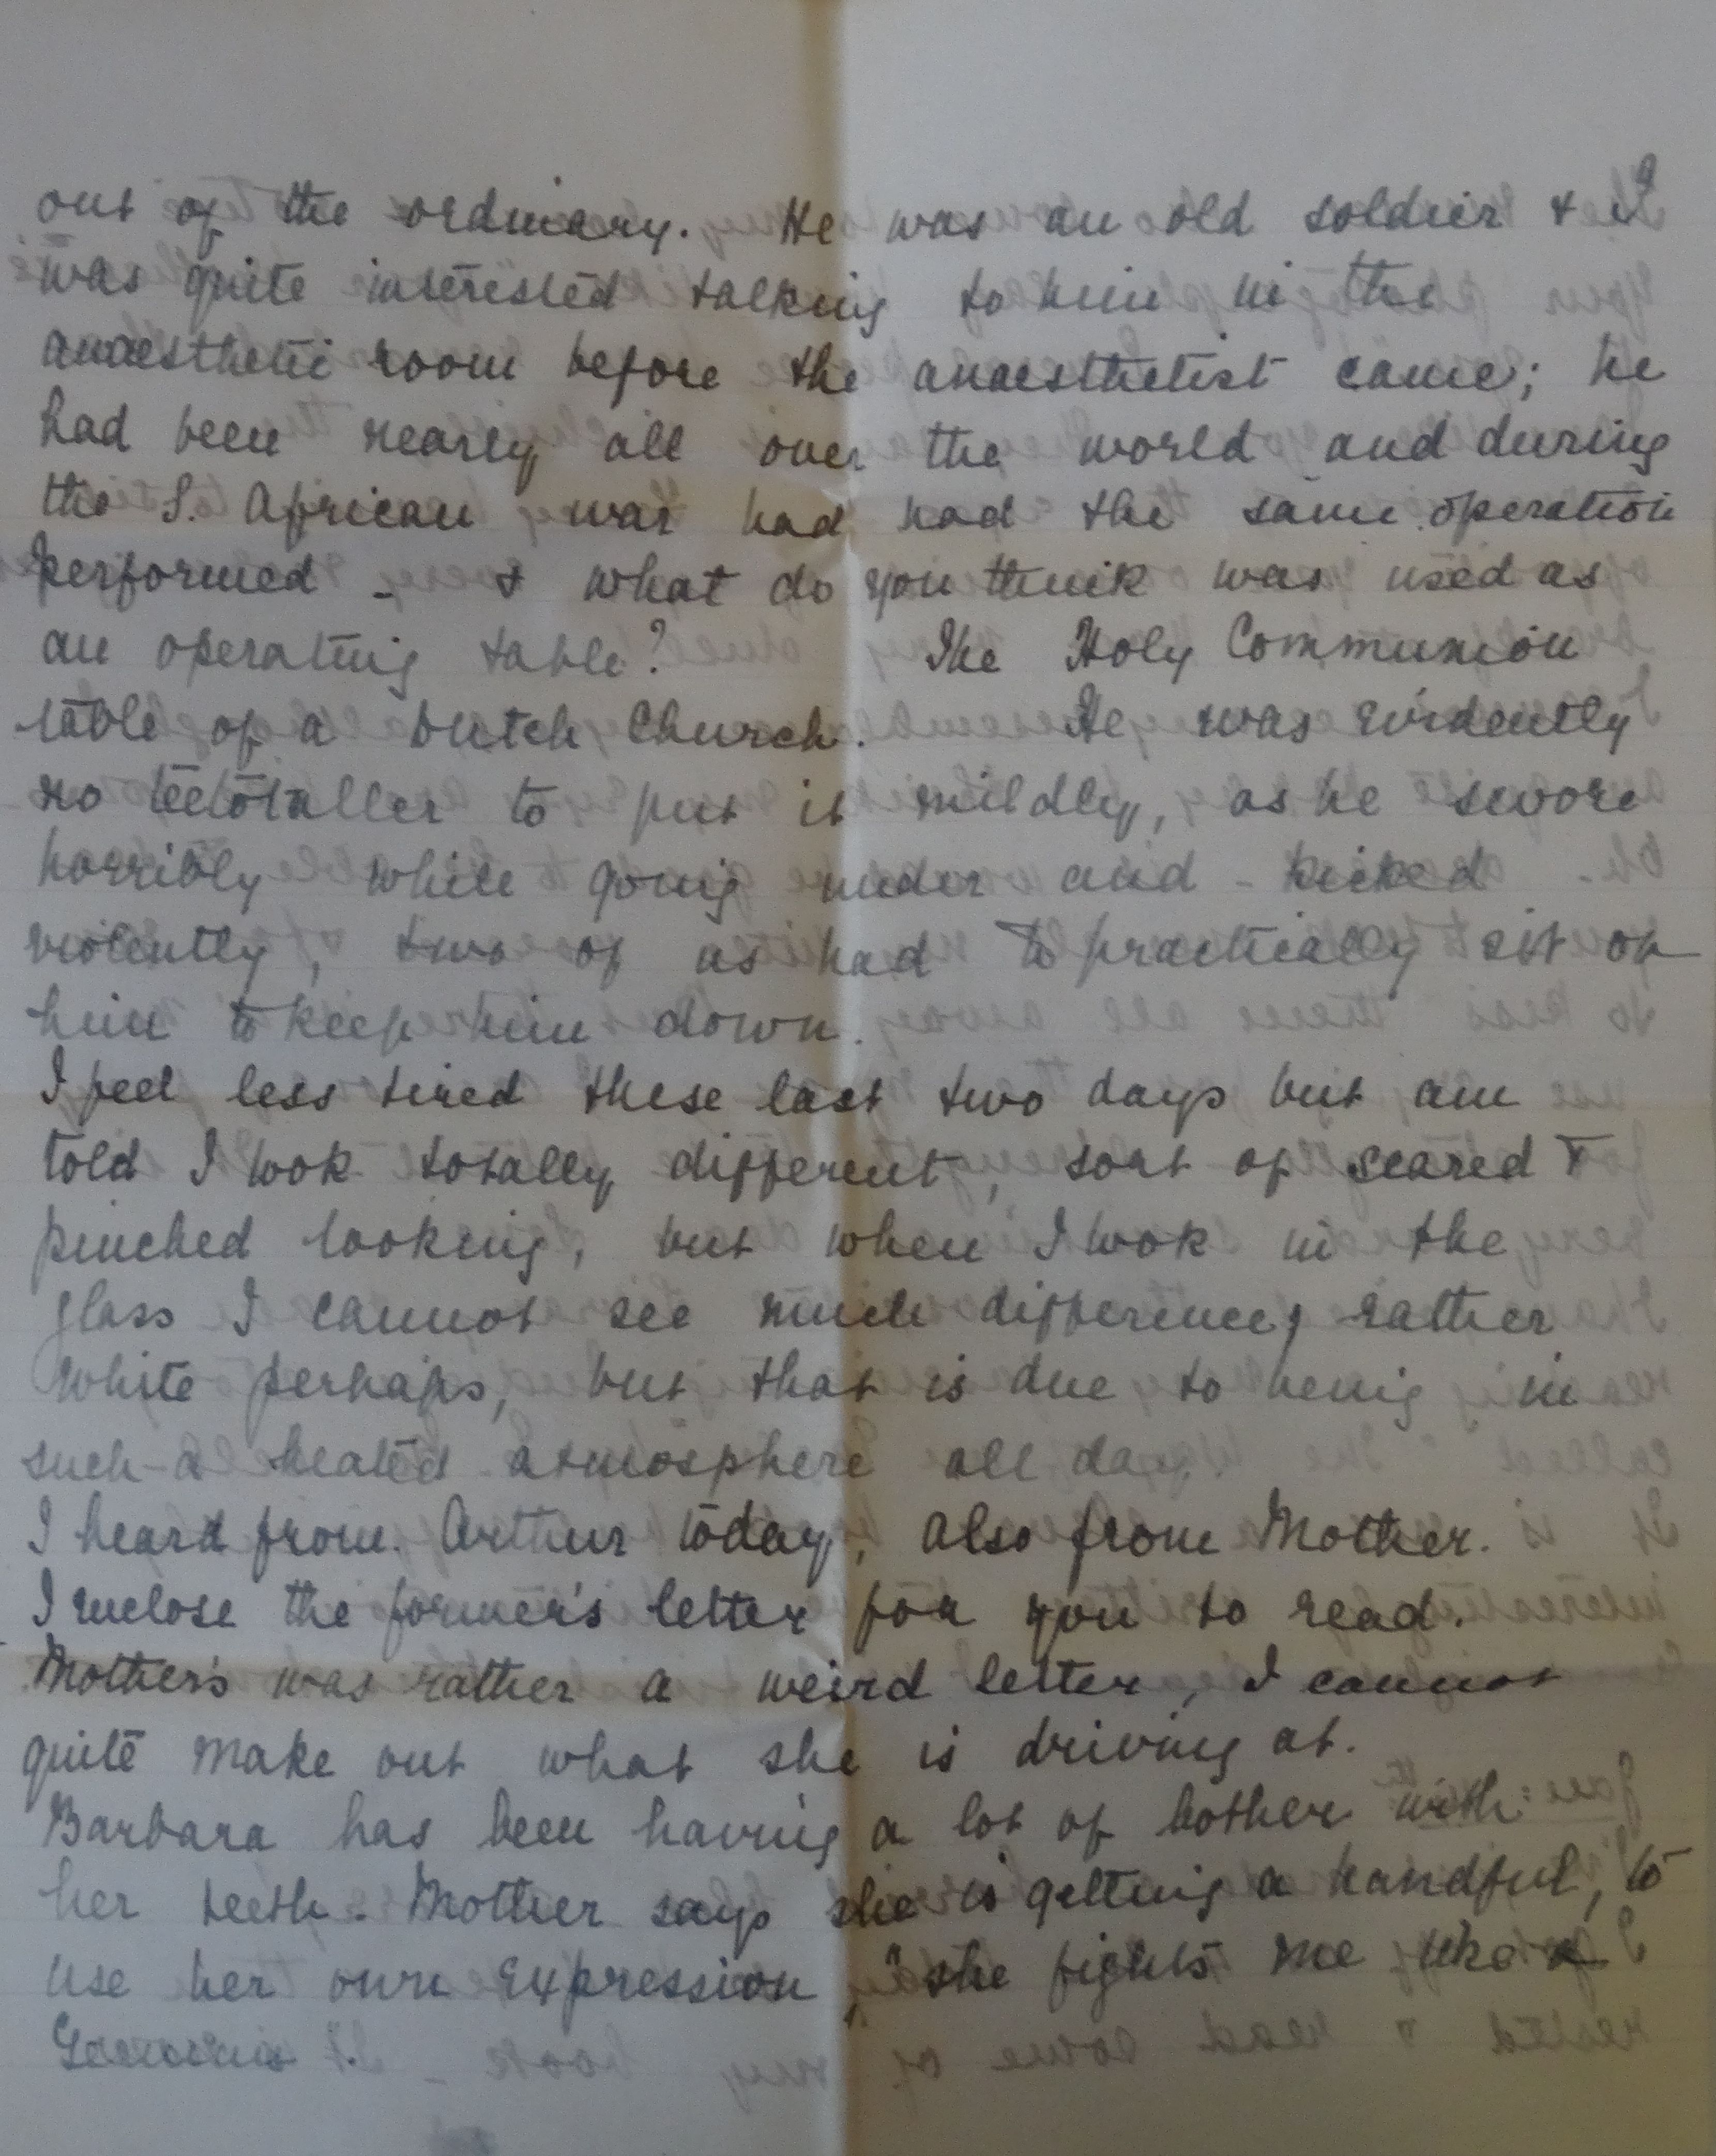 out of the ordinary. He was an old soldier & I
was quite interested talking to him in the
anaesthetic room before the anaesthetist came; he
had been nearly all over the world and during
the S. African war had had the same operation
performed - & what do you think was used as
an operating table? The Holy Communion
table of a Dutch Church. He was evidently
no teetotaller to put it mildly, as he swore
horribly while going under and - kicked
violently, two of us had to practically sit on
him to keep him down.
I feel less tired these last two days but am
told I look totally different, sort of scared &
pinched looking, but when I look in the
glass I cannot see much difference, rather
white perhaps, but that is due to being in
such a heated atmosphere all day.
I heard from Arthur today, also from Mother.
I enclose the former's letter for you to read.
Mother's was rather a weird letter, I cannot
quite make out what she is driving at.
Barbara has been having a lot of bother with
her teeth. Mother says she is getting a handful, to
use her own expression, "she fights me like a